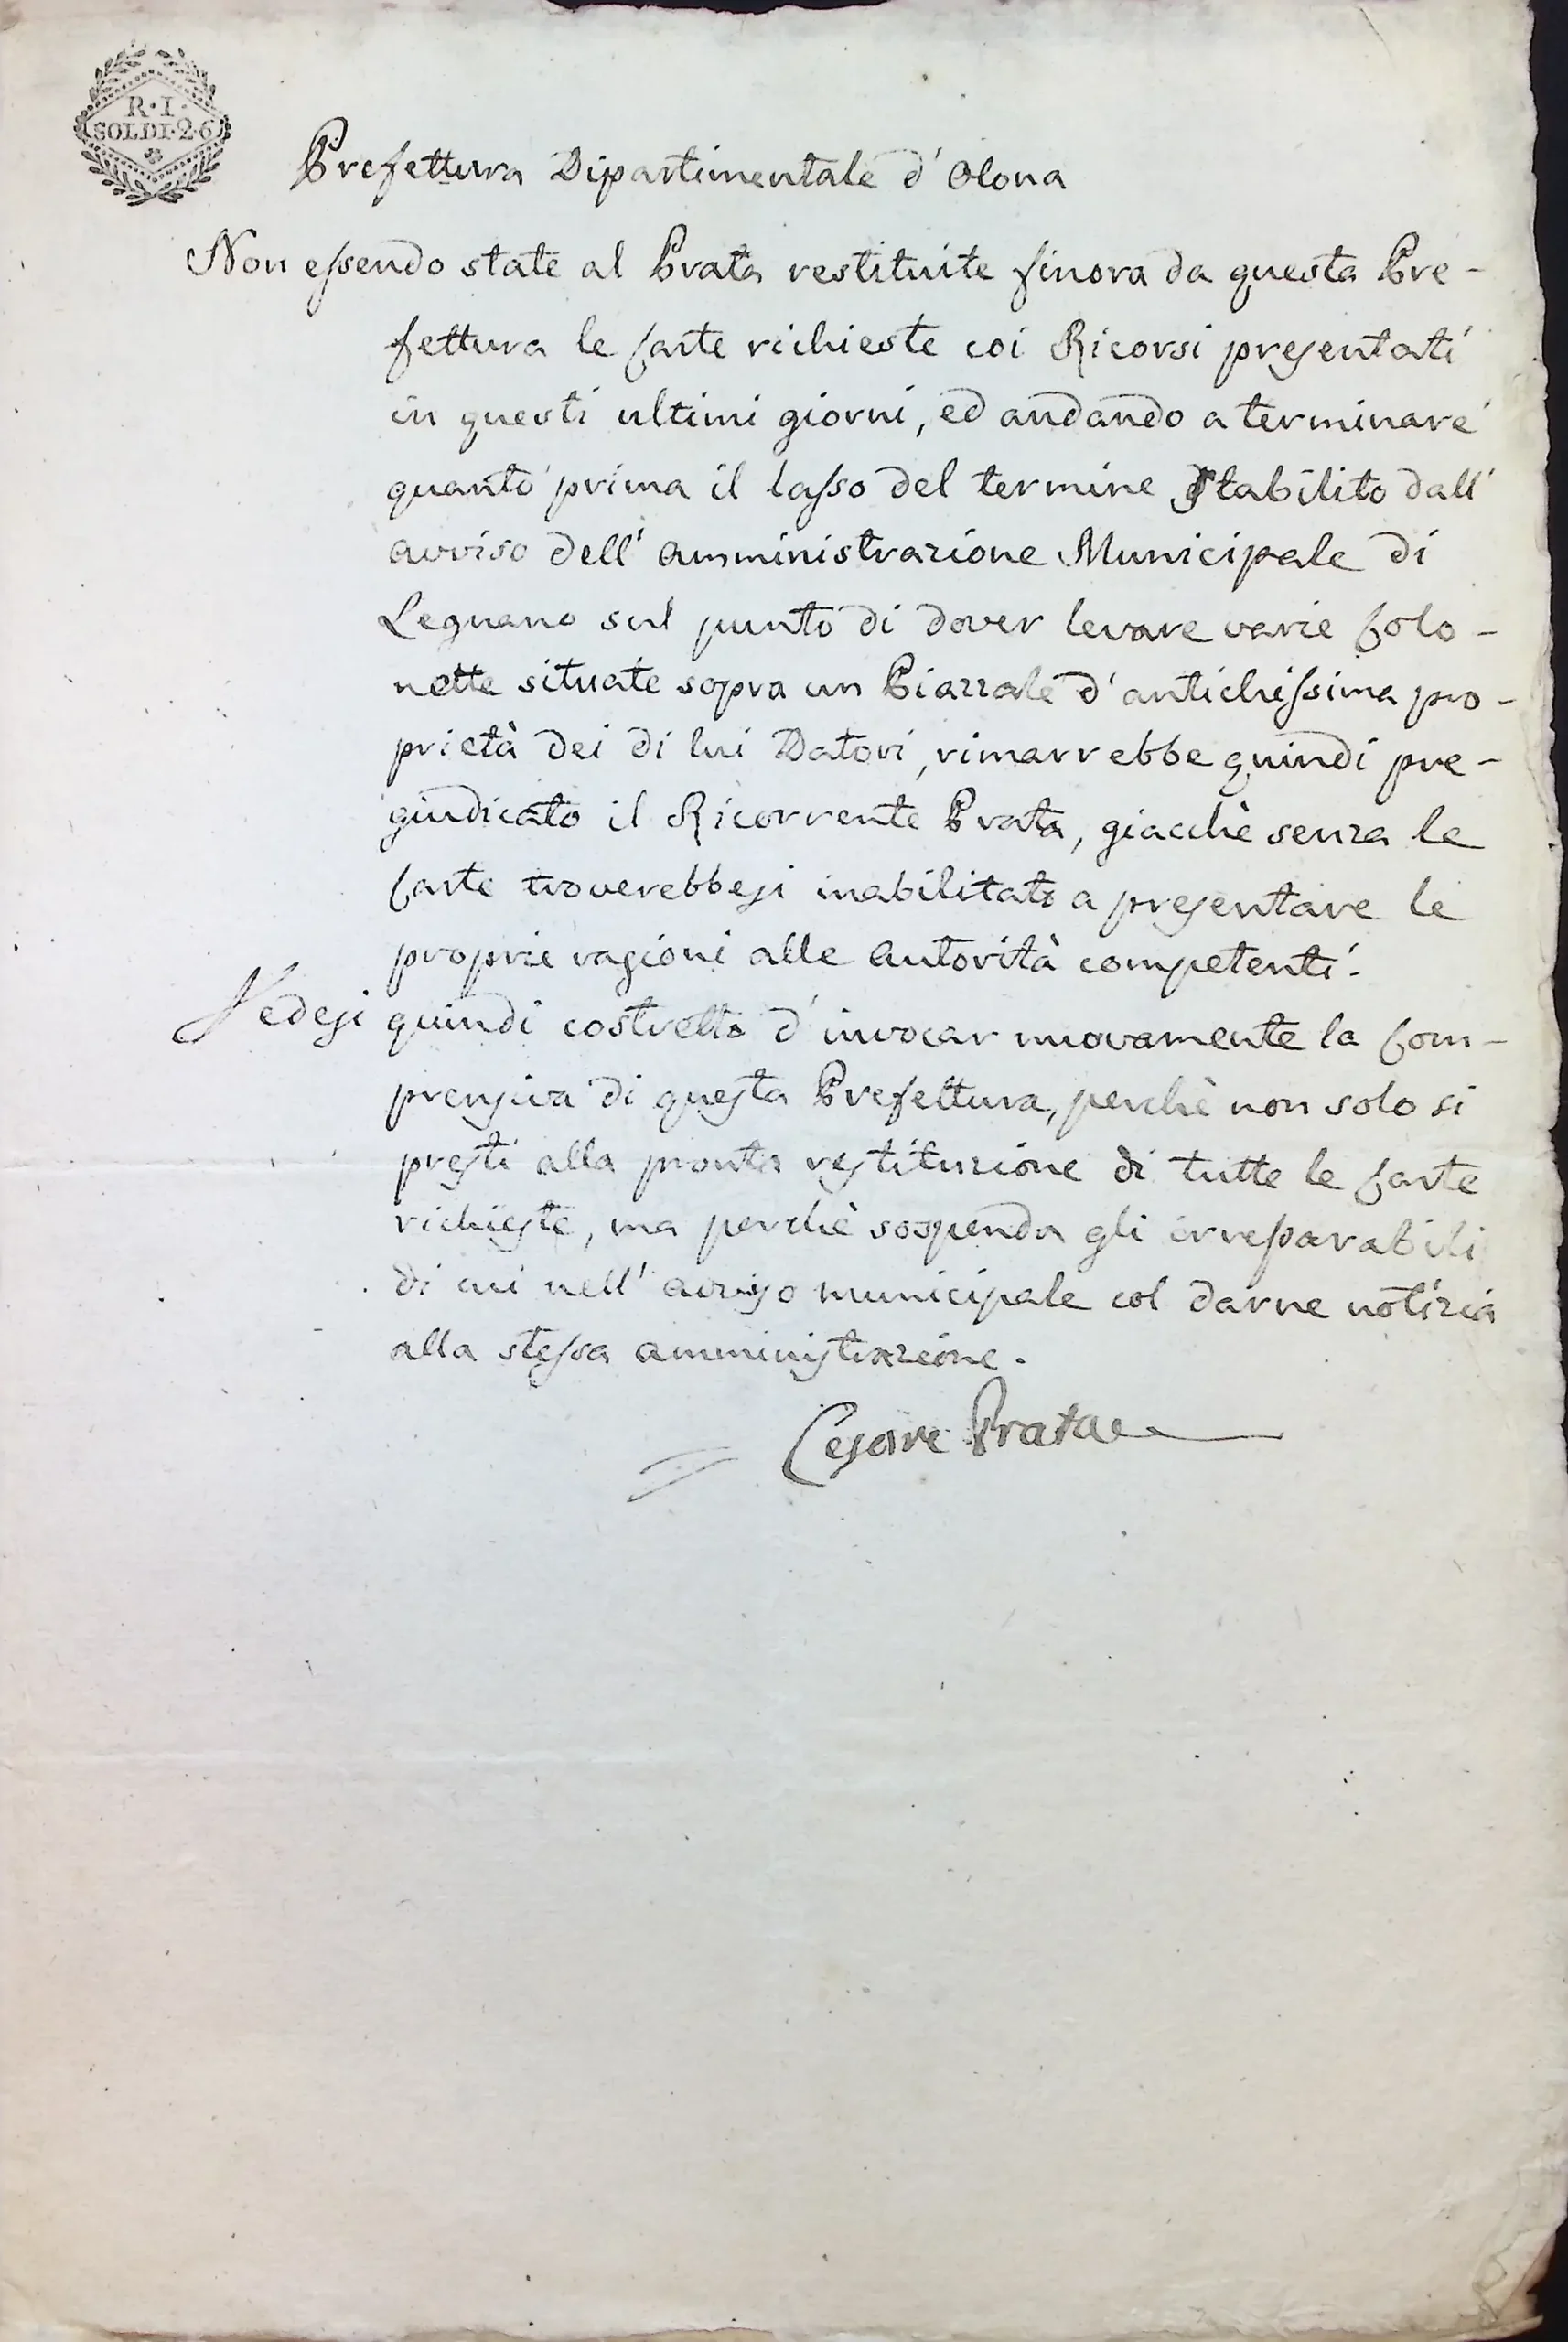 R·I·
SOLDI·2·6
Prefettura Dipartimentale d'Olona
Non essendo state al Prata restituite finora da questa Pre-
fettura le Carte richieste coi Ricorsi presentati
in questi ultimi giorni, ed andando a terminare
quanto prima il lasso del termine stabilito dall'
avviso dell'Amministrazione Municipale di
Legnano sul punto di dover levare varie Colo-
nette situate sopra un Piazzale d'antichissima pro-
prietà dei di lui Datori, rimarrebbe quindi pre-
giudicato il Ricorrente Prata, giacchè senza le
Carte troverebbesi inabilitato a presentare le
proprie ragioni alle Autorità competenti.
Vedesi quindi costretto d'invocar nuovamente la Com-
prensiva di questa Prefettura, perchè non solo si
presti alla pronta restituzione di tutte le Carte
richieste, ma perchè sospenda gli irreparabili
di cui nell'avviso municipale col darne notizia
alla stessa amministrazione.
Cesare Prata